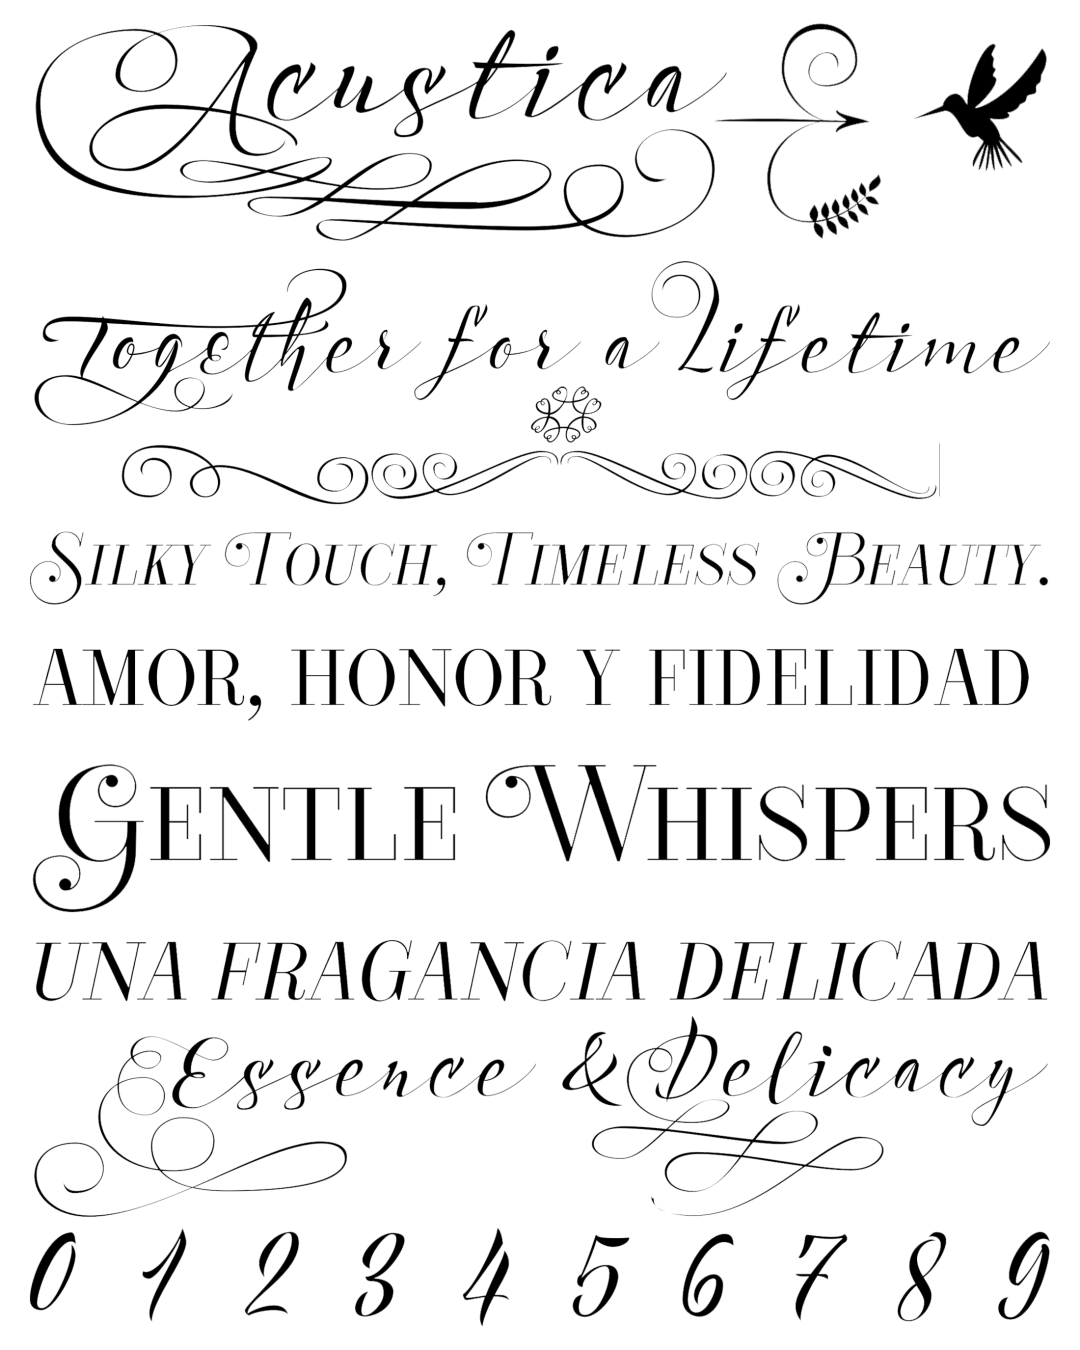 Acustica
Together for a Lifetime
Silky Touch, Timeless Beauty.
AMOR, HONOR Y FIDELIDAD
Gentle Whispers
UNA FRAGANCIA DELICADA
Essence & Delicacy
0 1 2 3 4 5 6 7 8 9